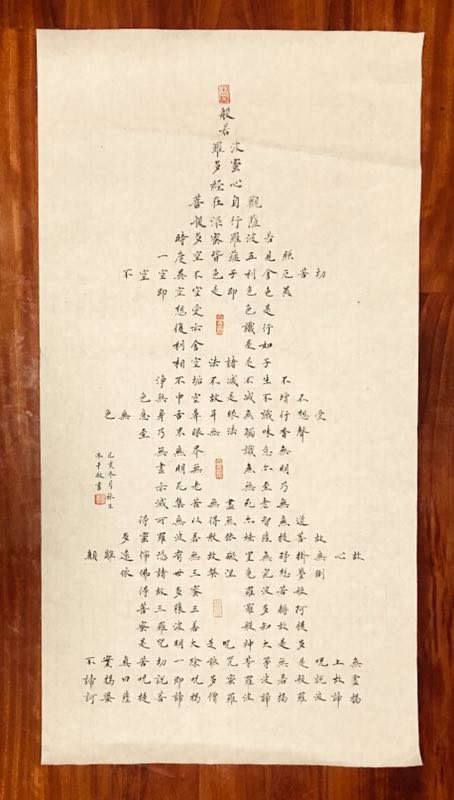 般若
故
無靈揭
心
上故諦
切
受
故無倒
咒說波
苦
不想聲
菩掛夢般阿提多是般羅
照厄異
不增行香無明乃無無提碍想若耨故是無若揭
若見舍色是行如子生不識味意尔至老智薩無究波多知大等波諦
觀薩波五利色色識是是不減無觸識無無死尔埵罣竟羅羅般神等羅波
波蜜心自行羅蘊子即
諸減是眼法
盡無依礙涅
咒咒蜜羅
羅多經在深蜜皆色是
法不故耳無
無得般故槃
是能多僧
菩般多空不空受亦舍空垢空鼻眼界無老苦以善無三蜜三善大除咒揭
時度異空想復利相不中舌界無明死集無波有世多藐波明一即諦
一空即
淨無身乃無盡亦滅可羅恐諸故三羅咒切說菩
空
色意至
得蜜怖佛得菩蜜是苦咒提
不
無
多遠依
真曰薩
色
離
實揭婆
顛
不諦訶
己亥冬月
沐手敬書